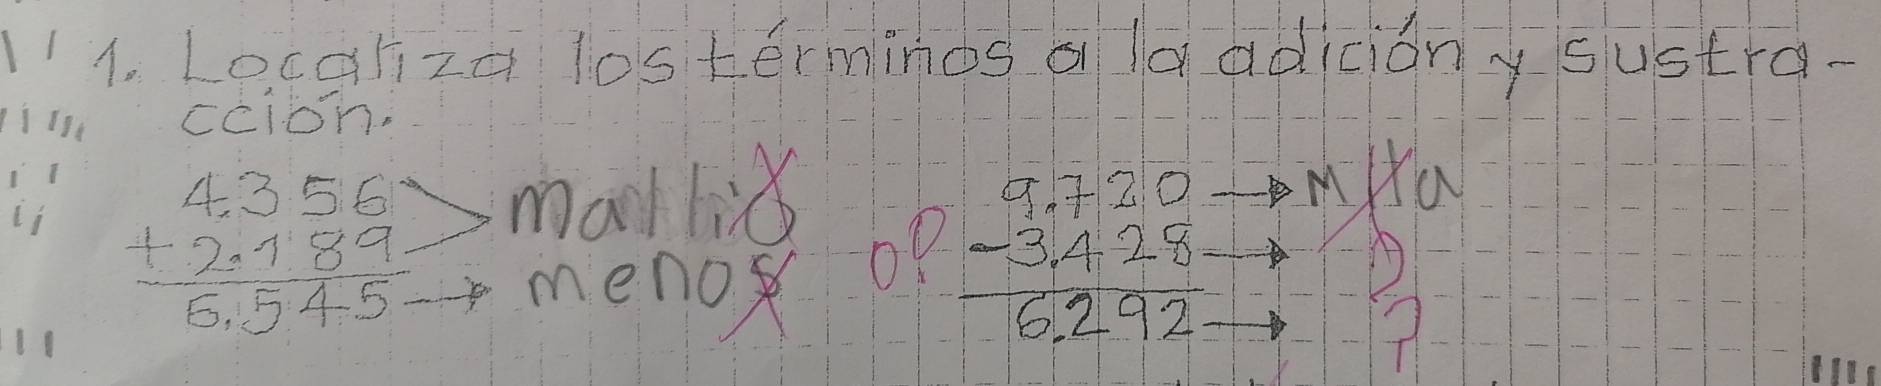 1. Localiza los términos a la adición y sustra-
cción.
4.356
+2.189
6.545 → menos
9.720 →
-3.428 → ?
6.292 → ?